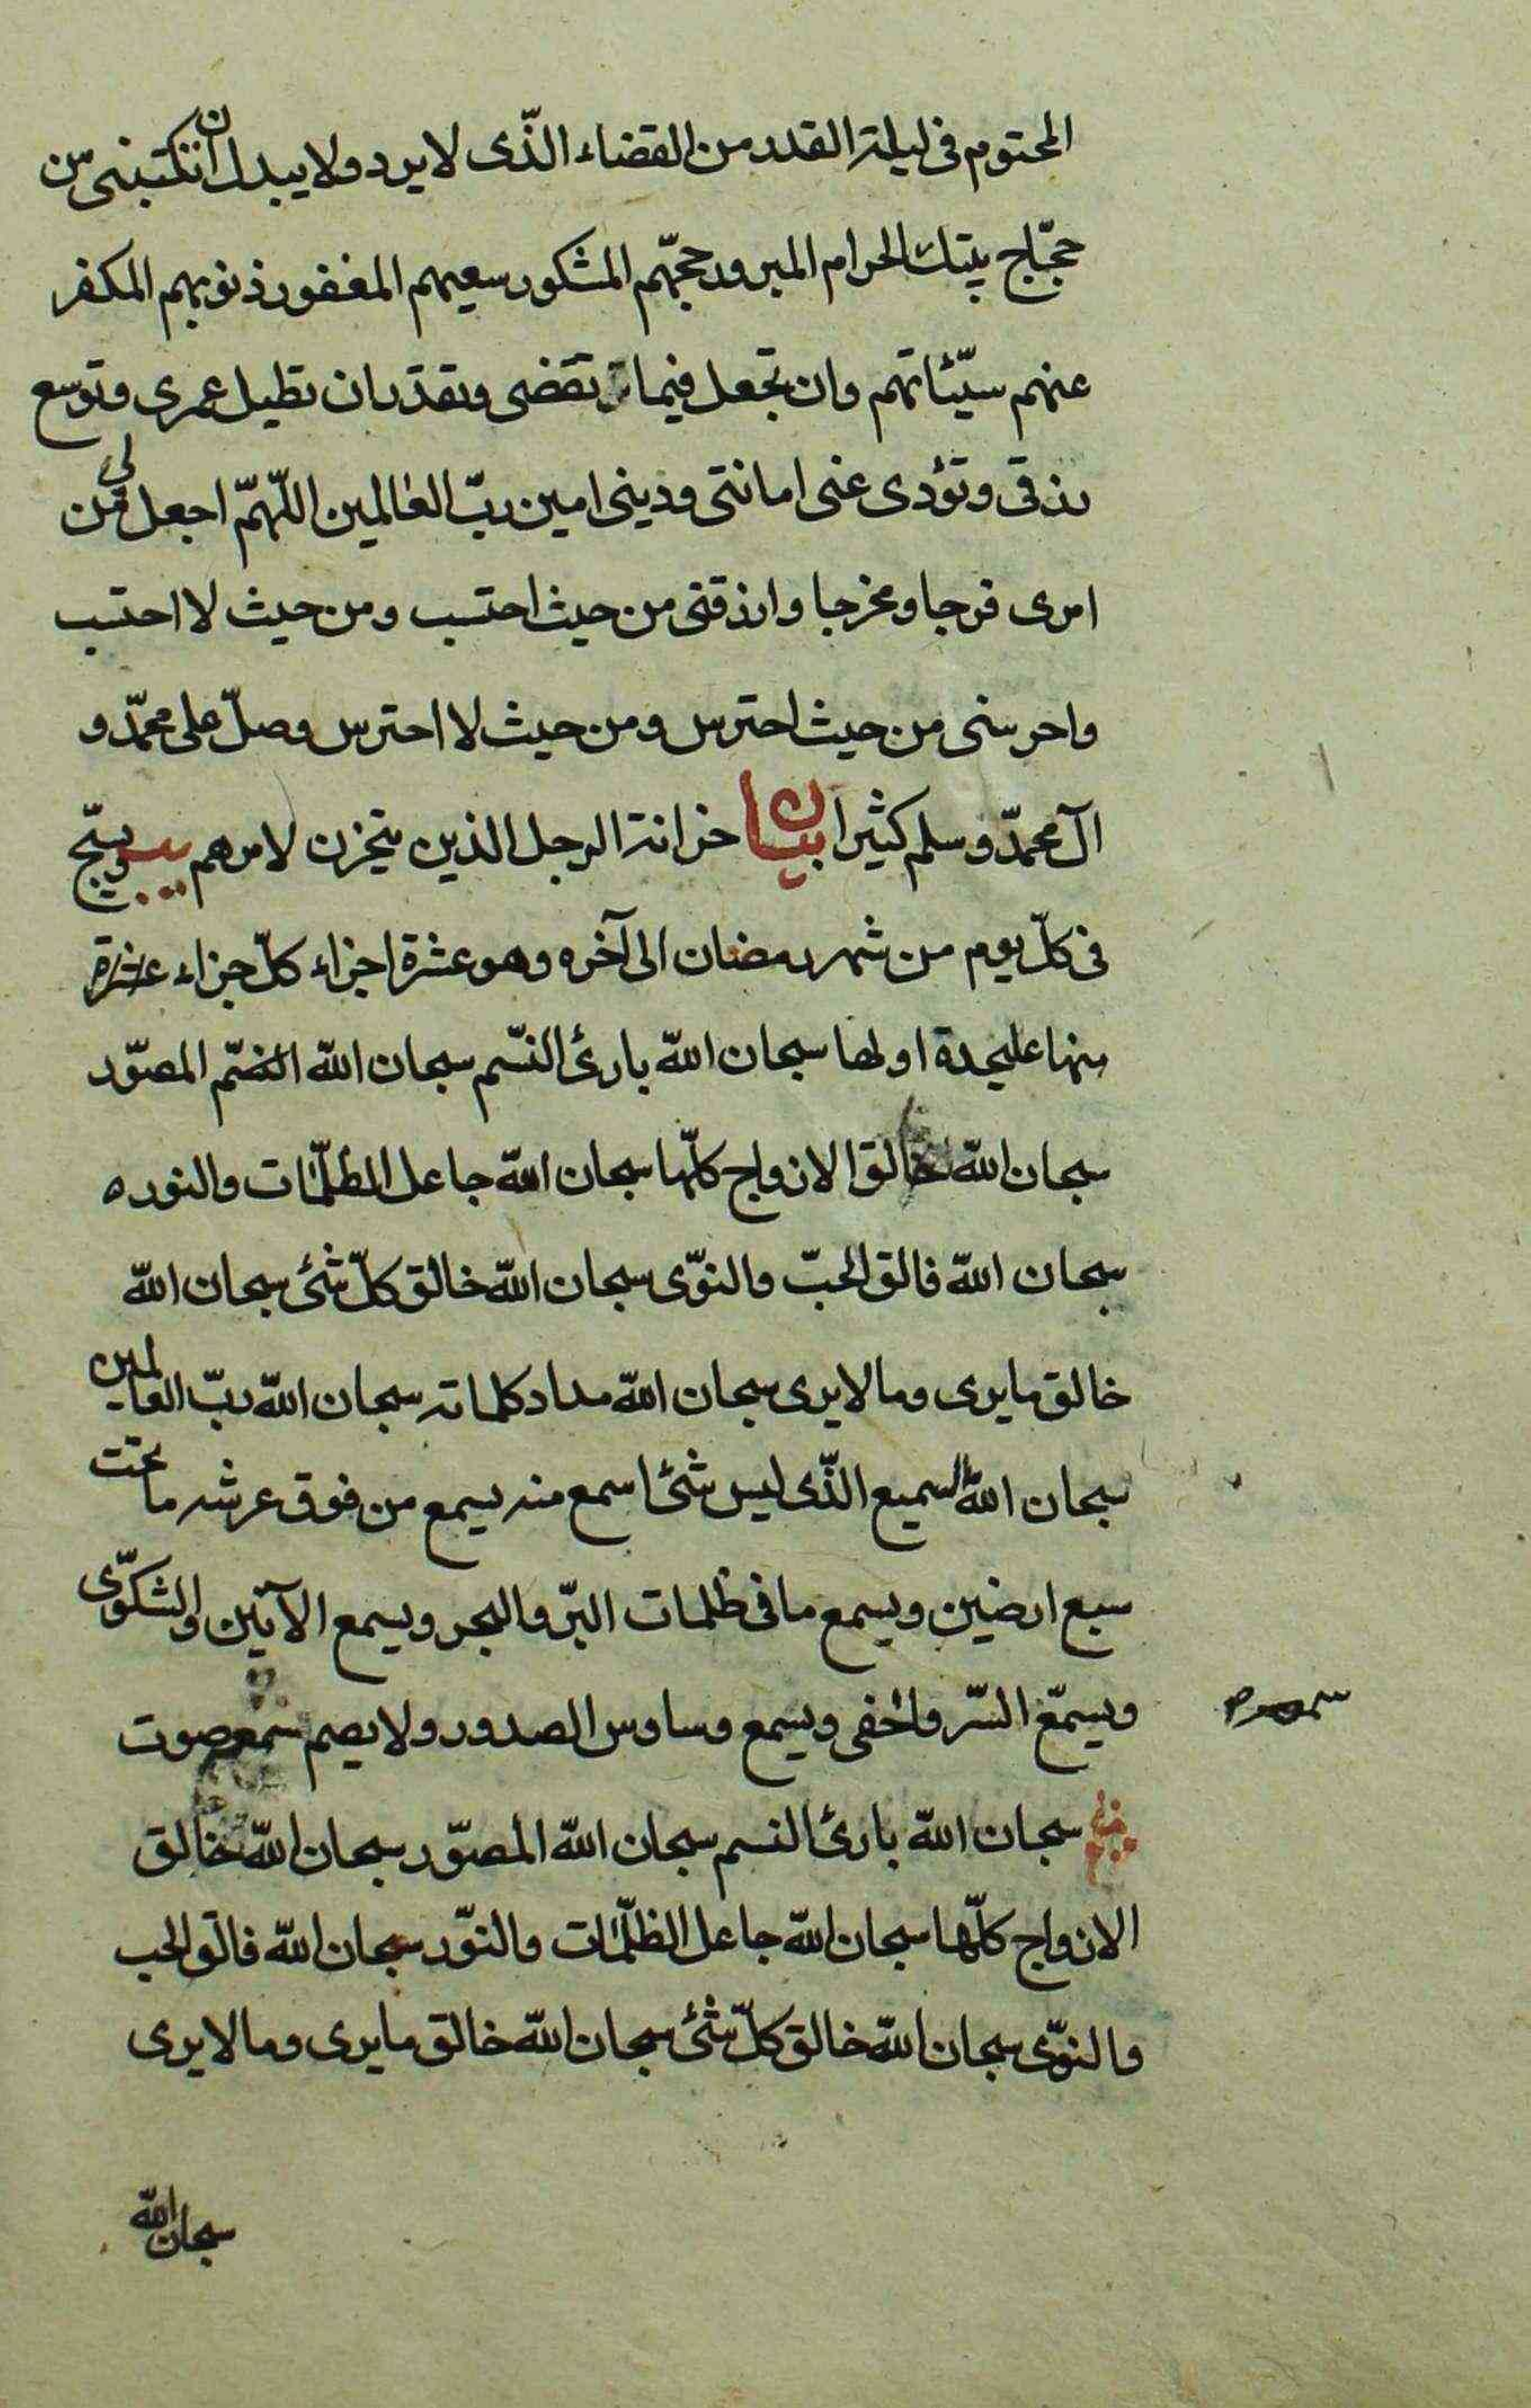 المحتوم فی لیلة القدر من القضاء الذّی لا یرد ولا یبدل ان تکتبنی من
حجّاج بیتك الحرام المبرور حجّهم المشکور سعیهم المغفور ذنوبهم المکفر
عنهم سیّئاتهم وان تجعل فیما تقضی وتقدّر ان تطیل عمری وتوسع
رزقی وتؤدی عنی امانتی ودینی امین ربّ العالمین اللّهمّ اجعل لی من
امری فرجا ومخرجا وارزقنی من حیث احتسب ومن حیث لا احتسب
واحرسنی من حیث احترس ومن حیث لا احترس وصلّ علی محمّد و
آل محمّد وسلم کثیرا بیان خزانة الرجل الذین یتخزن لامرهم ویسبّح
فی کلّ یوم من شهر رمضان الی آخره وهو عشرة اجزاء کلّ جزاء عشرة
منها علیحدة اولها سبحان اللّه بارئ النسّم سبحان اللّه المصوّر
سبحان اللّه خالق الازواج کلّها سبحان اللّه جاعل الظلّمات والنوره
سبحان اللّه فالق الحبّ والنوّی سبحان اللّه خالق کلّ شئ سبحان اللّه
خالق ما یری وما لا یری سبحان اللّه مداد کلماته سبحان اللّه ربّ العالمین
سبحان اللّه السمیع الذّی لیس شئ اسمع منه یسمع من فوق عرشه ما تحت
سبع ارضین ویسمع ما فی ظلمات البرّ والبحر ویسمع الآنین والشکوّی
ویسمّع السّر واخفی ویسمع وساوس الصدور ولا یصم سمعه صوت
سبحان اللّه بارئ النسم سبحان اللّه المصوّر سبحان اللّه خالق
الازواج کلّها سبحان اللّه جاعل الظلّمات والنوّر سبحان اللّه فالق الحب
والنوّی سبحان اللّه خالق کلّ شئ سبحان اللّه خالق ما یری وما لا یری
سبحان اللّه